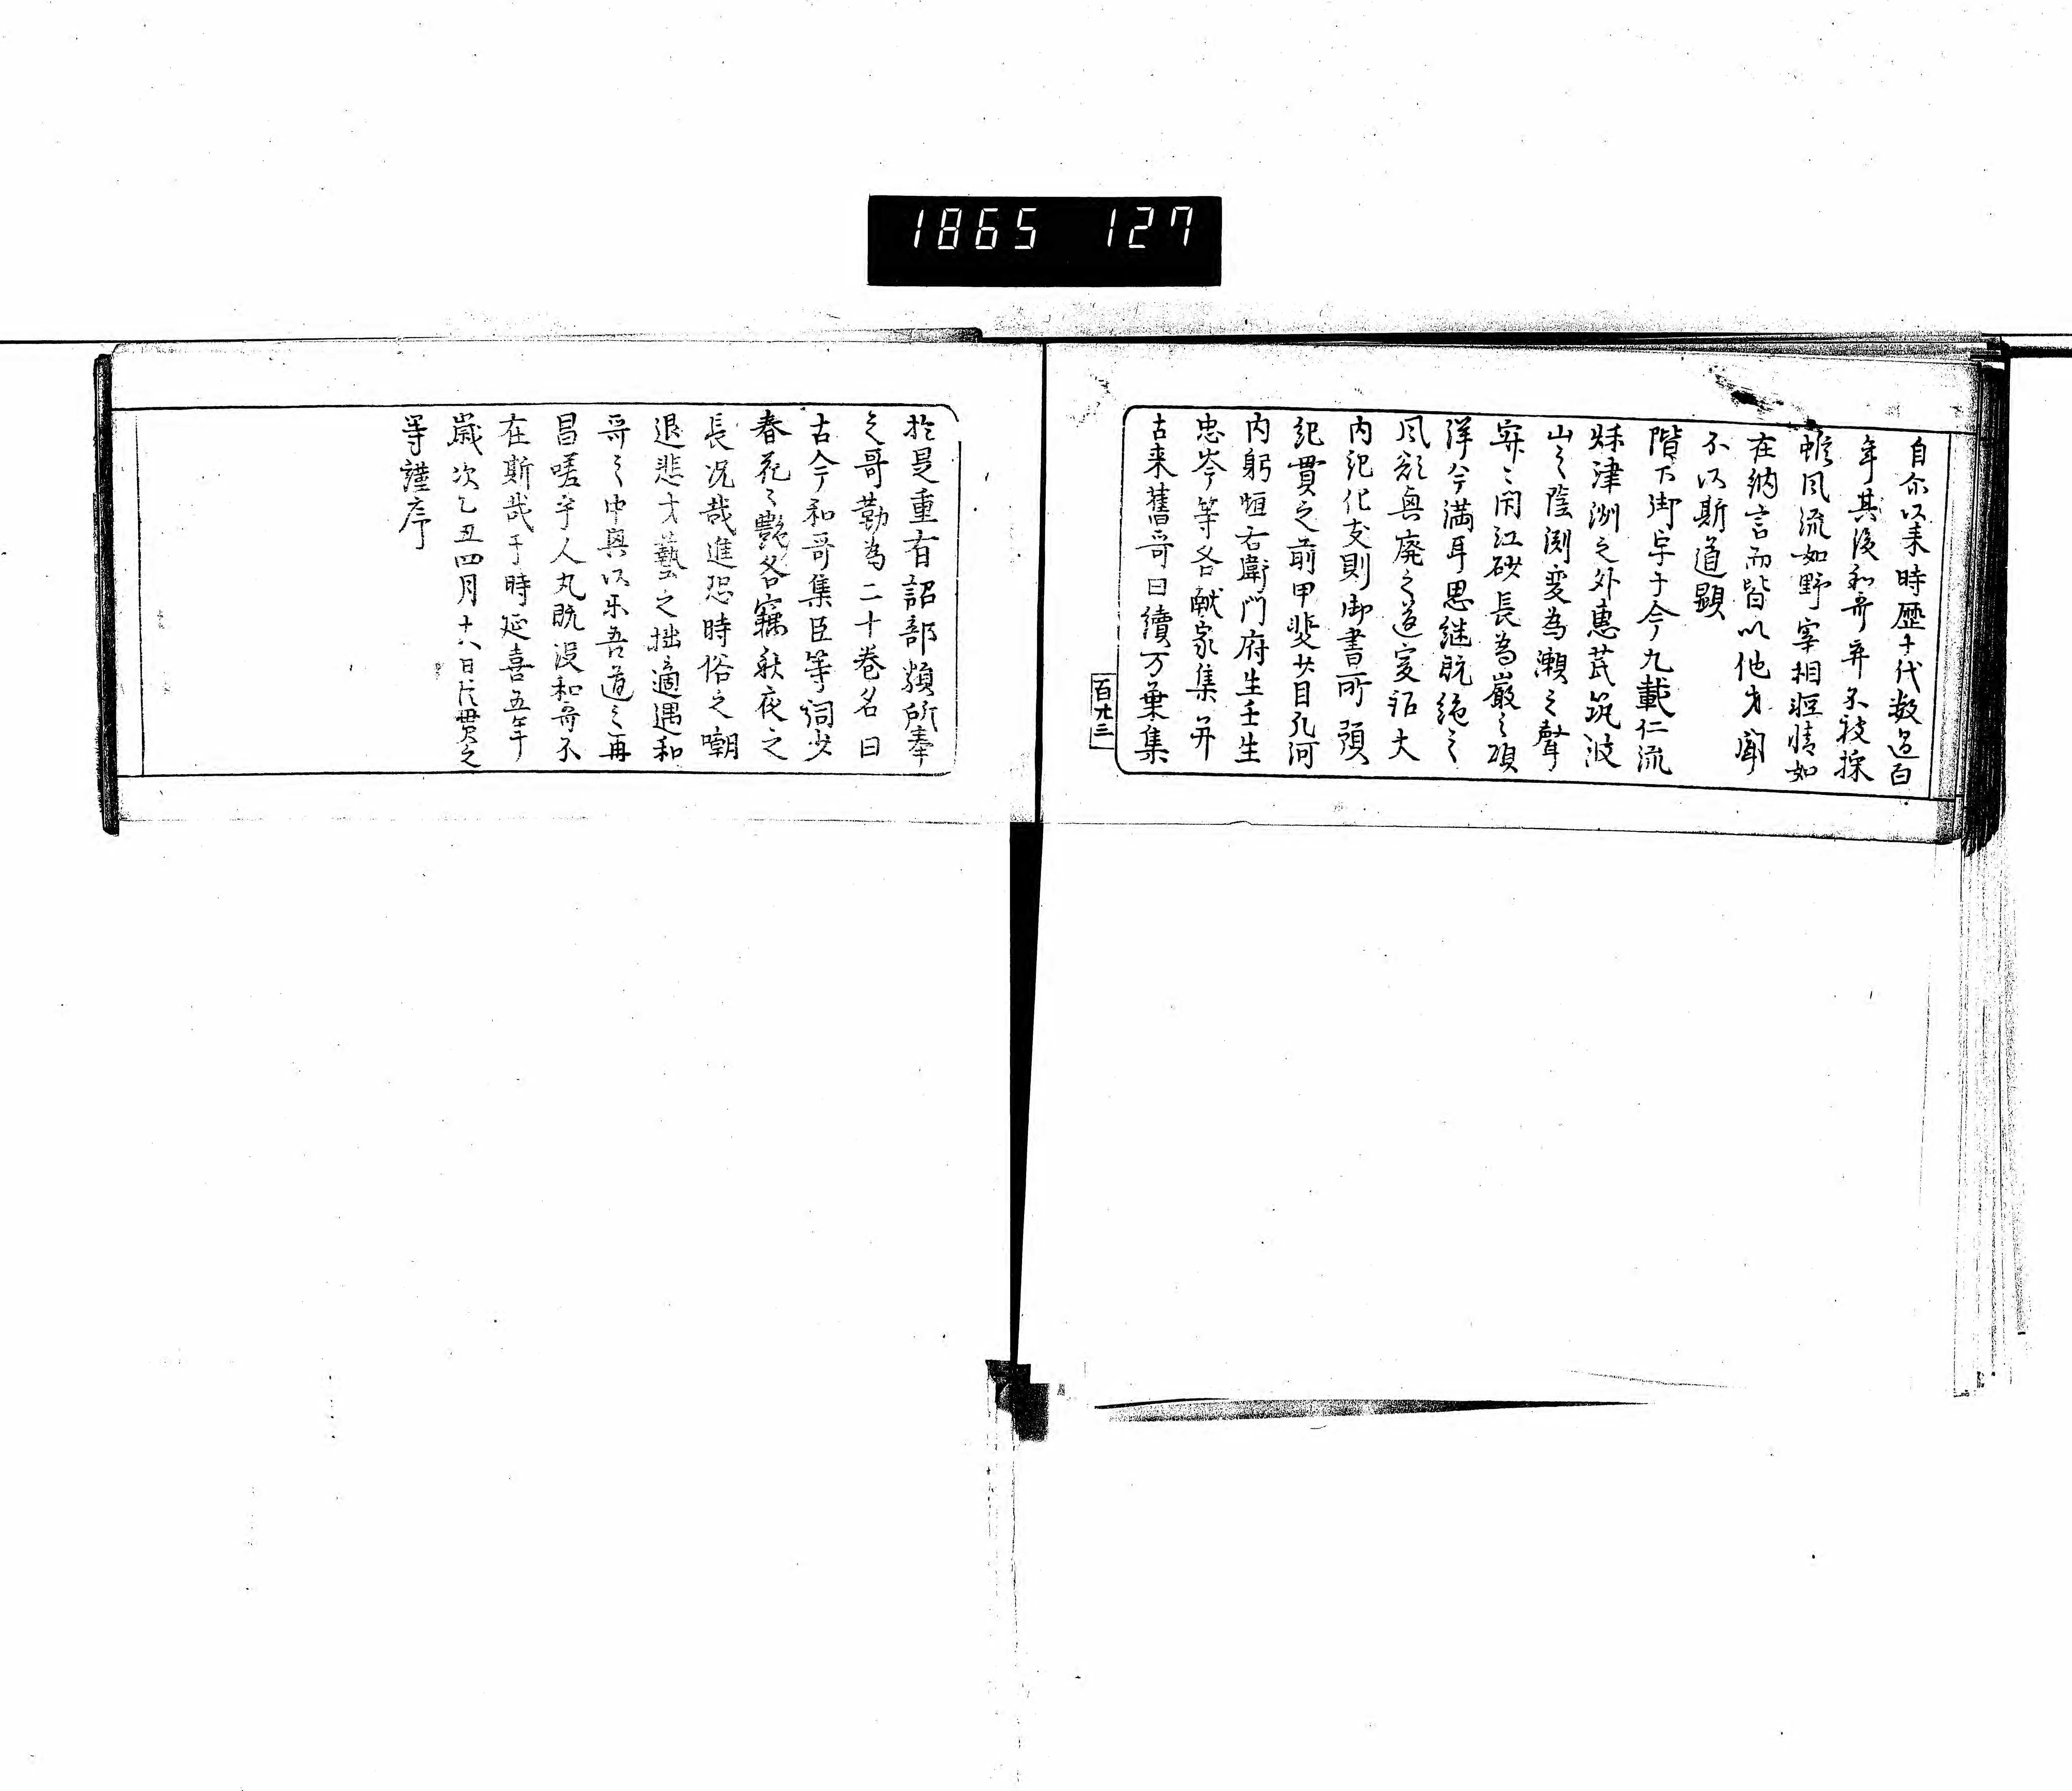 1865 127
自尓以来時歴十代数過百
年其後和哥弃不被採
雖風流如野宰相雅情如
在納言而皆以他才聞
不以斯道顕
陛下御宇于今九載仁流
秌津洲之外恵茂筑波
山之陰渕変為瀬之聲
寂々閇江砂長為巌之頌
洋々満耳思継既絶之
風欲興廃之道爰詔大
内記紀友則御書所預
紀貫之前甲斐少目凡河
内躬恒右衛門府生壬生
忠岑等各献家集并
古来舊哥曰續万葉集
百廿三
於是重有詔部類所奉
之哥勒為二十巻名曰
古今和哥集臣等詞少
春花之艶名竊秋夜之
長况哉進恐時俗之嘲
退悲才藝之拙適遇和
哥之中興以樂吾道之再
昌嗟乎人丸既没和哥不
在斯哉于時延喜五年
歳次乙丑四月十八日臣貫之
等謹序